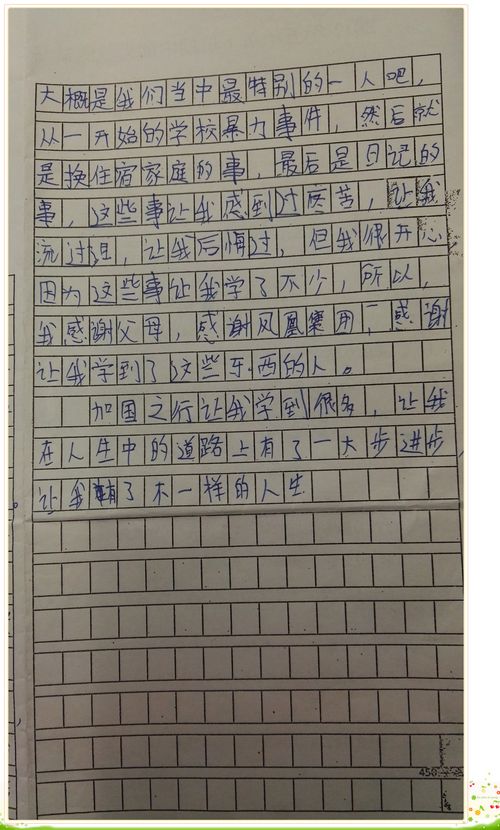 大概是我们当中最特别的一人吧，
从一开始的学校暴力事件，然后就
是换住宿家庭的事，最后是日记的
事，这些事让我感到过疼苦，让我
流过泪，让我后悔过，但我很开心
因为这些事让我学了不少，所以，
我感谢父母，感谢凤凰 用一感谢
让我学到了这些东西的人。
加国之行让我学到很多，让我
在人生中的道路上有了一大步进步，
让我有了不一样的人生
450